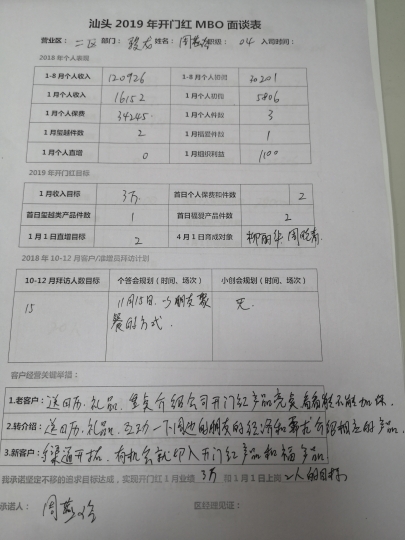 汕头 2019 年开门红 MBO 面谈表
营业区： 二区 部门： 骏龙 姓名： 周 班级： 04 入司时间：
2018 年个人表现
1-8月个人收入 120926 1-8月个人初佣 30201
1月个人收入 16152 1月个人初佣 5806
1月个人保费 34245 1月个人件数 3
1月玺越件数 2 1月福婴件数 1
1月个人直增 0 1月组织利益 1100
2019 年开门红目标
1月收入目标 3万 首日个人保费和件数 2
首日玺越类产品件数 1 首日福婴产品件数 2
1月1日直增目标 2 4月1日育成对象 柳丽华 周
2018 年 10-12 月客户/准增员拜访计划
10-12 月拜访人数目标 个答会规划（时间、场次） 小创会规划（时间、场次）
15 11月15日，以朋友聚 无。
餐的方式．
客户经营关键举措：
1.老客户： 送日历．礼品，重点介绍公司开门红产品亮点看看能不能加保．
2.转介绍： 送日历．礼品，互动一下周边的朋友的经济和需求介绍相应的产品．
3.新客户： 渠道开拓，有机会就切入开门红产品和福产品
我承诺坚定不移的追求目标达成，实现开门红 1 月业绩 3万 和 1 月 1 日上岗 2人的目标
承诺人： 周 区经理见证：